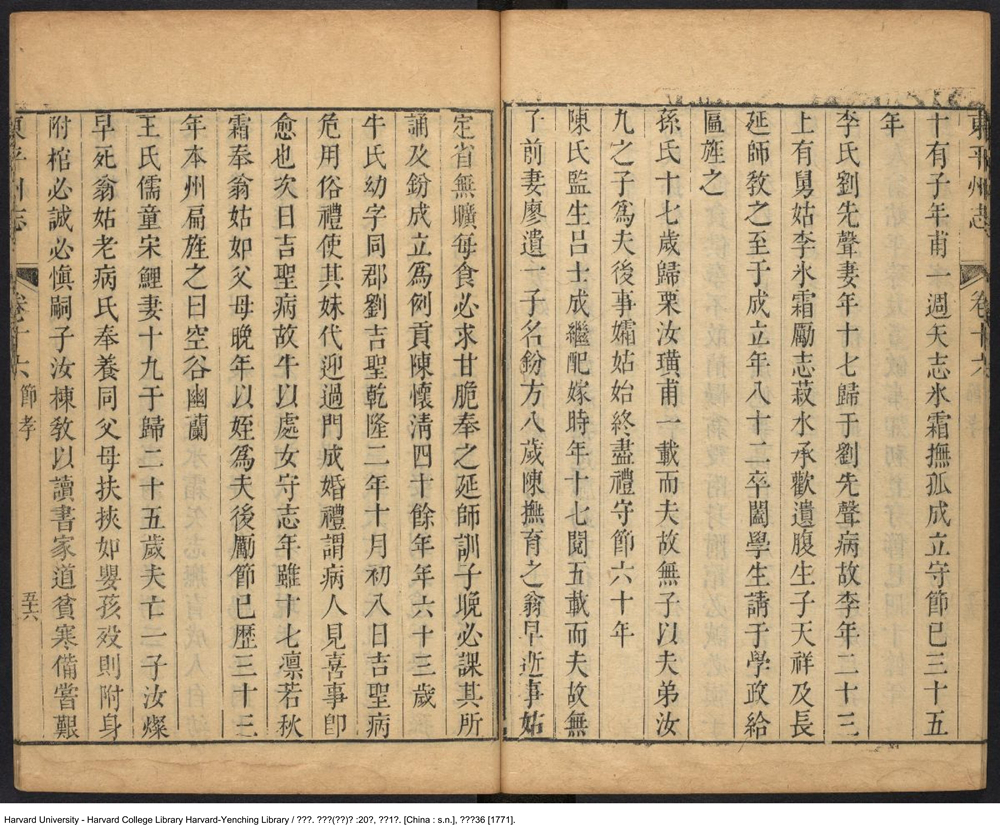 東平州志 卷十六
十有子年甫一週矢志氷霜撫孤成立守節已三十五
年
李氏劉先聲妻年十七歸于劉先聲病故李年二十三
上有舅姑李氷霜勵志菽水承歡遺腹生子天祥及長
延師敎之至于成立年八十二卒闔學生請于學政給
匾旌之
孫氏十七歲歸栗汝璜甫一載而夫故無子以夫弟汝
九之子爲夫後事孀姑始終盡禮守節六十年
陳氏監生呂士成繼配嫁時年十七閱五載而夫故無
子前妻廖遺一子名鈖方八歲陳撫育之翁早逝事姑
定省無曠每食必求甘脆奉之延師訓子晚必課其所
誦及鈖成立爲例貢陳懷清四十餘年年六十三歲
牛氏幼字同郡劉吉聖乾隆二年十月初八日吉聖病
危用俗禮使其妹代迎過門成婚禮謂病人見喜事卽
愈也次日吉聖病故牛以處女守志年雖十七凛若秋
霜奉翁姑如父母晚年以姪爲夫後勵節已歷三十三
年本州扁旌之曰空谷幽蘭
王氏儒童宋鯉妻十九于歸二十五歲夫亡一子汝燦
早死翁姑老病氏奉養同父母扶挾如嬰孩歿則附身
附棺必誠必愼嗣子汝棟敎以讀書家道貧寒備嘗艱
東平州志 卷十六 節孝 五十六
Harvard University - Harvard College Library Harvard-Yenching Library / ???. ???(??)? :20?, ??1?. [China : s.n.], ???36 [1771].